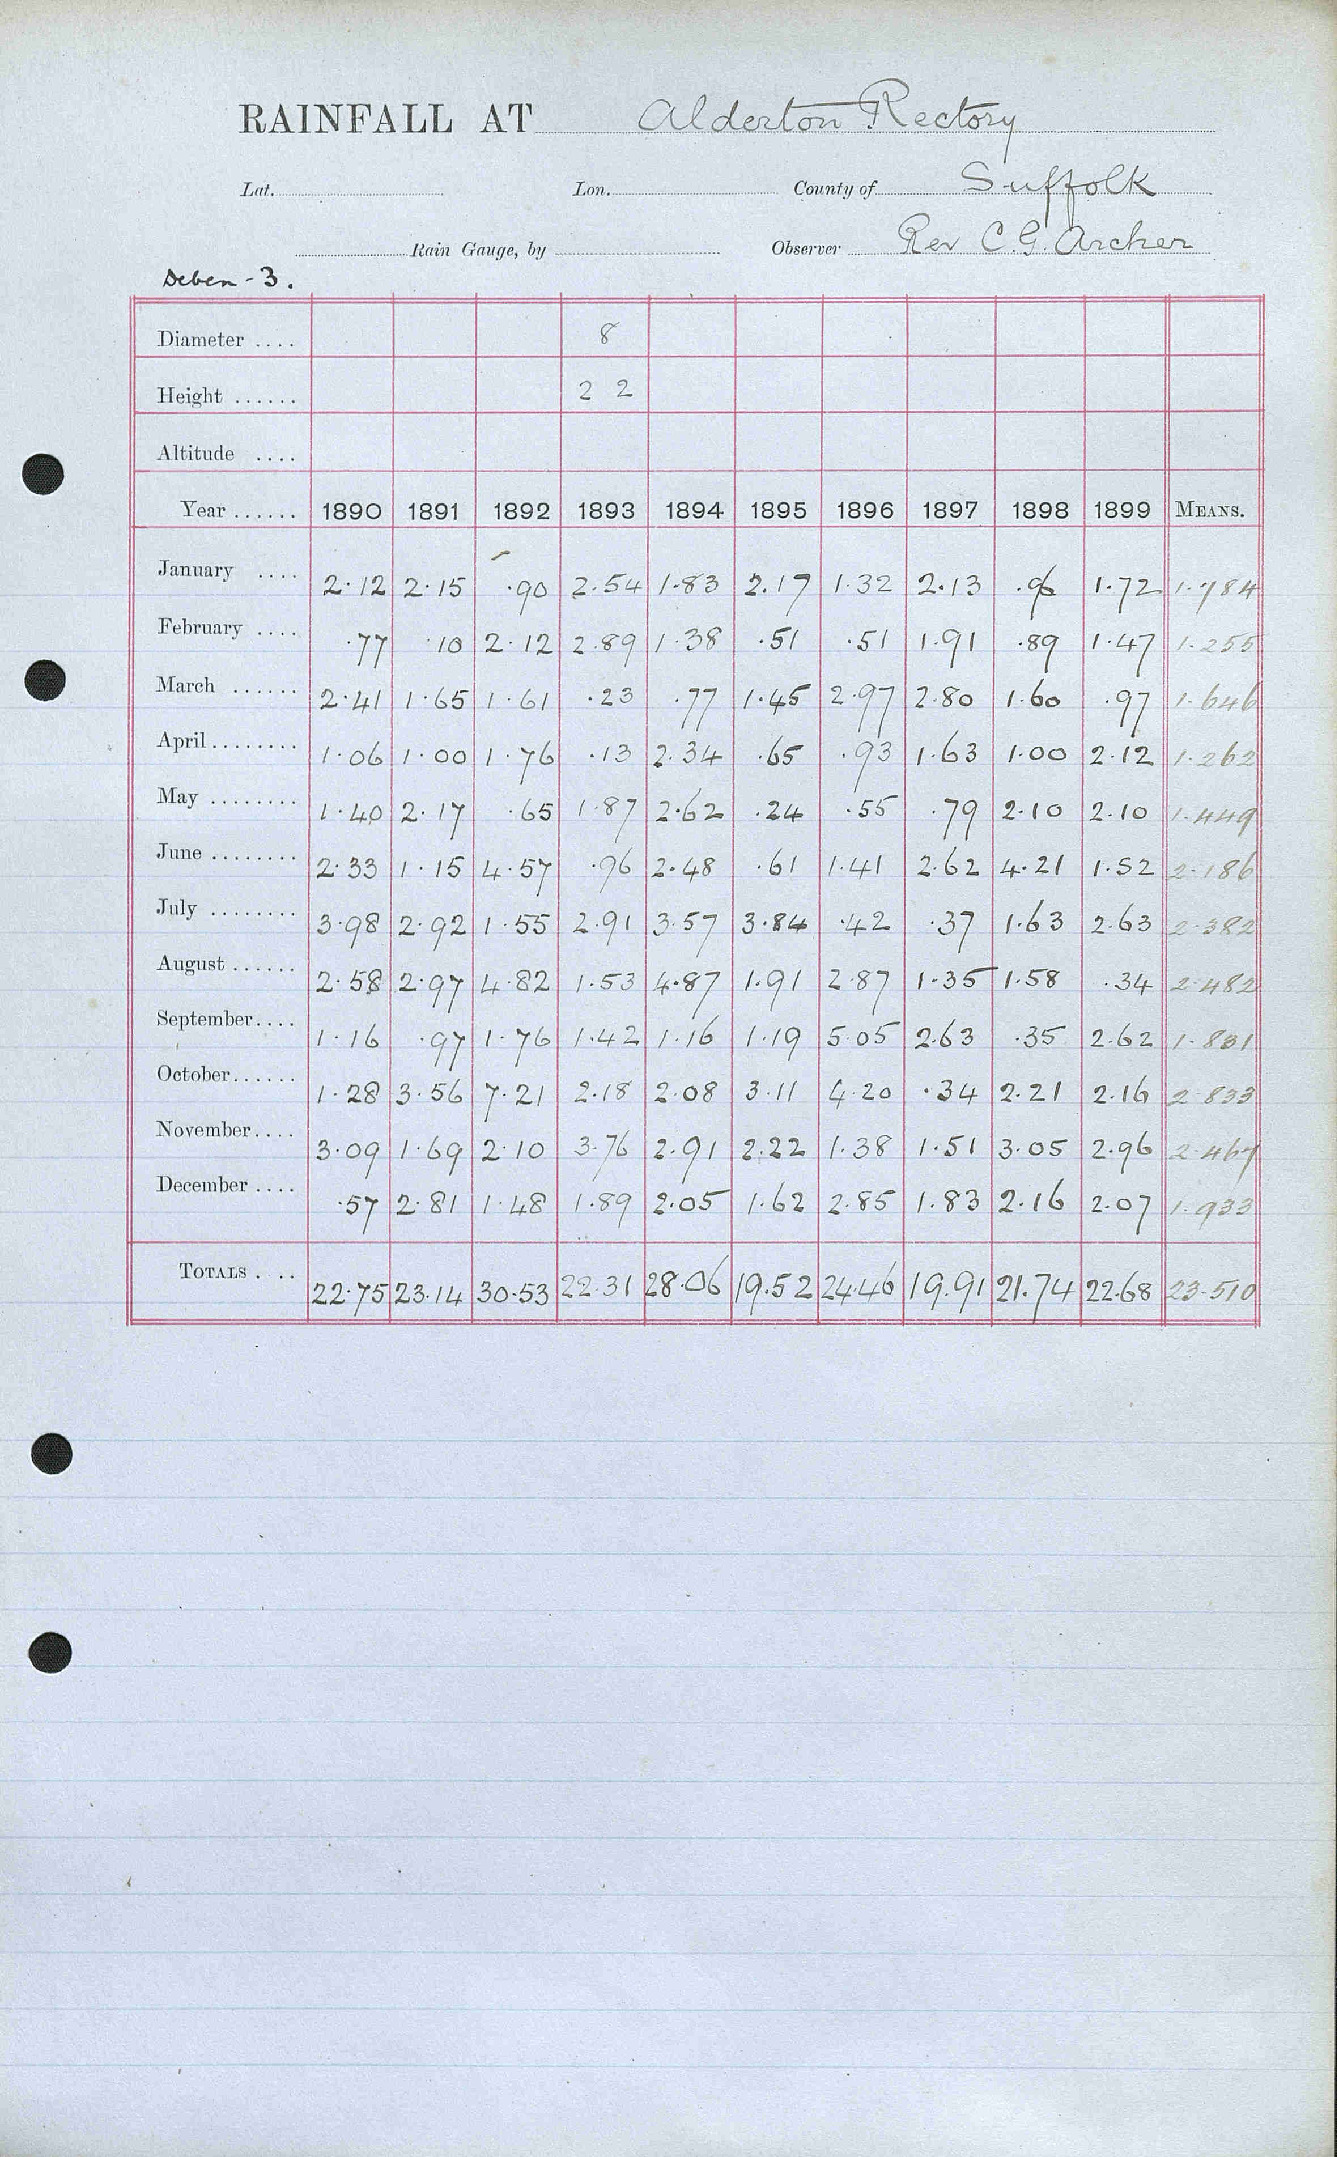 RAINFALL AT Alderton Rectory
Lat. Lon. County of Suffolk
Rain Gauge, by Observer Rev C.G. Archer
Deben - 3.
Diameter .... 8
Height ...... 2 2
Altitude ....
Year ...... 1890 1891 1892 1893 1894 1895 1896 1897 1898 1899 MEANS.
January .... 2.12 2.15 .90 2.54 1.83 2.17 1.32 2.13 .96 1.72 1.784
February .... .77 .10 2.12 2.89 1.38 .51 .51 1.91 .89 1.47 1.255
March ...... 2.41 1.65 1.61 .23 .77 1.45 2.97 2.80 1.60 .97 1.646
April ........ 1.06 1.00 1.76 .13 2.34 .65 .93 1.63 1.00 2.12 1.262
May ........ 1.40 2.17 .65 1.87 2.62 .24 .55 .79 2.10 2.10 1.449
June ........ 2.33 1.15 4.57 .96 2.48 .61 1.41 2.62 4.21 1.52 2.186
July ........ 3.98 2.92 1.55 2.91 3.57 3.84 .42 .37 1.63 2.63 2.382
August ...... 2.58 2.97 4.82 1.53 4.87 1.91 2.87 1.35 1.58 .34 2.482
September .... 1.16 .97 1.76 1.42 1.16 1.19 5.05 2.63 .35 2.62 1.831
October ...... 1.28 3.56 7.21 2.18 2.08 3.11 4.20 .34 2.21 2.16 2.833
November .... 3.09 1.69 2.10 3.76 2.91 2.22 1.38 1.51 3.05 2.96 2.467
December .... .57 2.81 1.48 1.89 2.05 1.62 2.85 1.83 2.16 2.07 1.933
TOTALS . .. 22.75 23.14 30.53 22.31 28.06 19.52 24.46 19.91 21.74 22.68 23.510